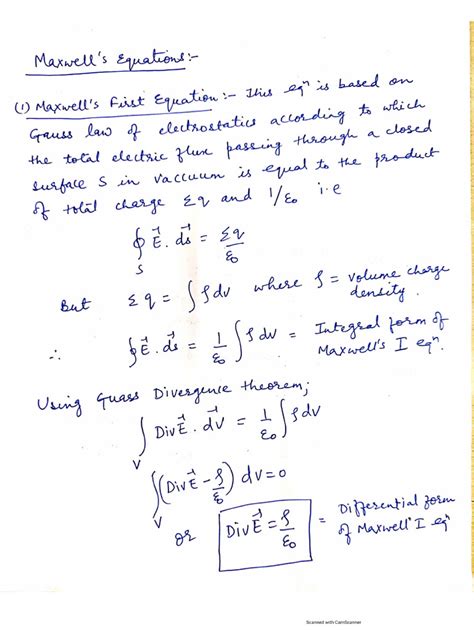 Maxwell's Equations:-
(1) Maxwell's First Equation:- This eqⁿ is based on
Gauss law of electrostatics according to which
the total electric flux passing through a closed
surface S in vaccuum is equal to the product
of total charge Σq and 1/ε₀ i.e
∮_S E⃗ . ds⃗ = Σq/ε₀
But Σq = ∫ρdv where ρ = volume charge
density.
∴ ∮E⃗ . ds⃗ = 1/ε₀ ∫ρdv = Integral form of
Maxwell's I eqⁿ.
Using Guass Divergence theorem;
∫_V DivE⃗ . dV⃗ = 1/ε₀ ∫ρdV
∫_V (DivE⃗ - ρ/ε₀) dv = 0
or DivE⃗ = ρ/ε₀ = Differential form
of Maxwell' I eqⁿ
Scanned with CamScanner